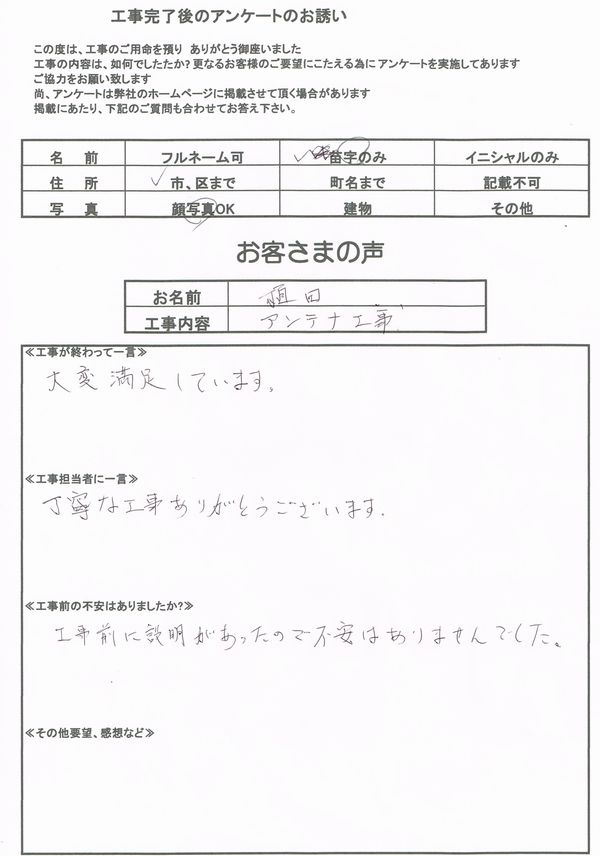 工事完了後のアンケートのお誘い
この度は、工事のご用命を預り ありがとう御座いました
工事の内容は、如何でしたたか？更なるお客様のご要望にこたえる為にアンケートを実施してあります
ご協力をお願い致します
尚、アンケートは弊社のホームページに掲載させて頂く場合があります
掲載にあたり、下記のご質問も合わせてお答え下さい。
名 前 フルネーム可 苗字のみ イニシャルのみ
住 所 市、区まで 町名まで 記載不可
写 真 顔写真OK 建物 その他
お客さまの声
お名前 植田
工事内容 アンテナ工事
≪工事が終わって一言≫
大変満足しています。
≪工事担当者に一言≫
丁寧な工事ありがとうございます.
≪工事前の不安はありましたか?≫
工事前に説明があったので不安はありませんでした。
≪その他要望、感想など≫